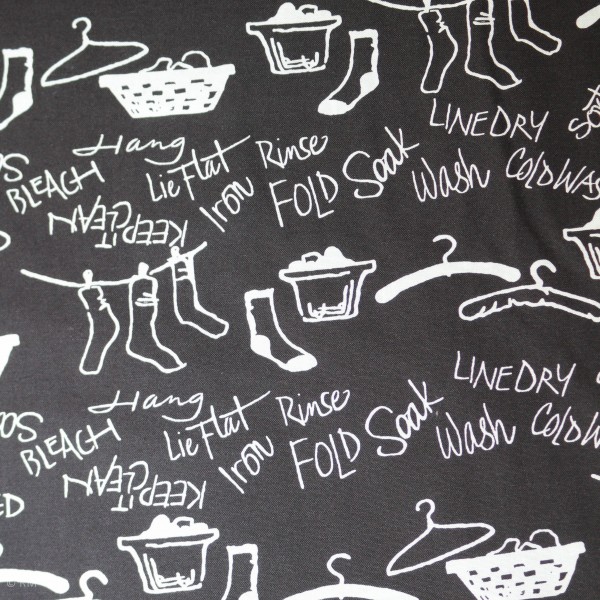 LINE DRY
Hang
Rinse
Soak
COLD WAS
BLEACH
Lie Flat
Iron
FOLD
Wash
KEEP IT
CLEAN
LINE DRY
Hang
Rinse
Soak
COLD W
BLEACH
Lie Flat
Iron
FOLD
Wash
KEEP IT
CLEAN
ED